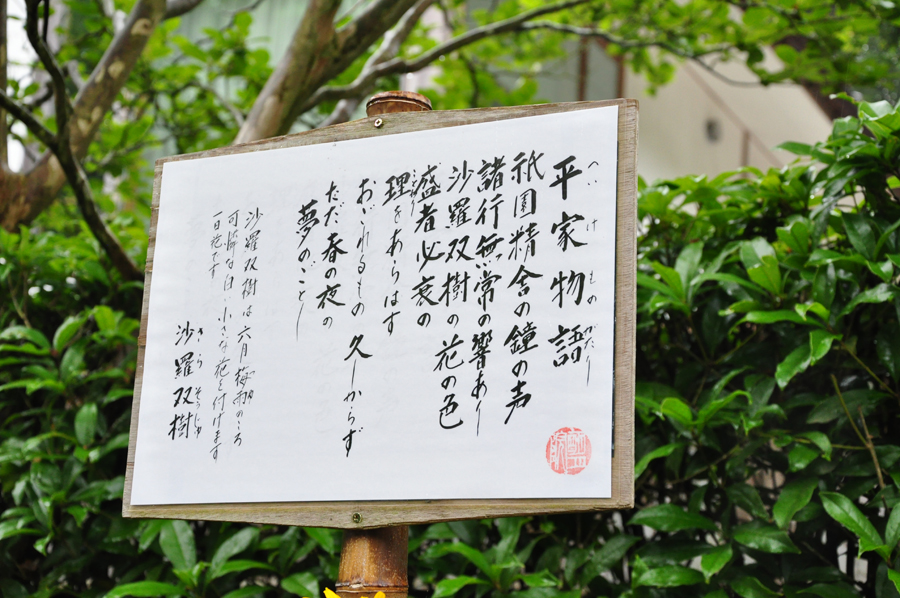 平家物語
へいけ ものがたり
祇園精舎の鐘の声
諸行無常の響あり
沙羅双樹の花の色
盛者必衰の
理をあらはす
おごれるもの 久しからず
ただ春の夜の
夢のごとし
沙羅双樹は六月梅雨のころ
可憐な白い小さな花を付けます
一日花です
沙羅双樹
さら そうじゅ